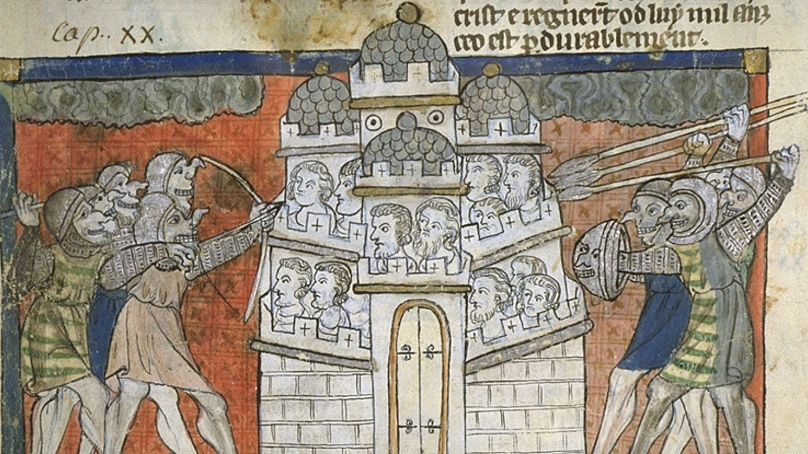 Cap. XX.
crist e regnerũt od luy mil ainz
ceo est pdurablement.